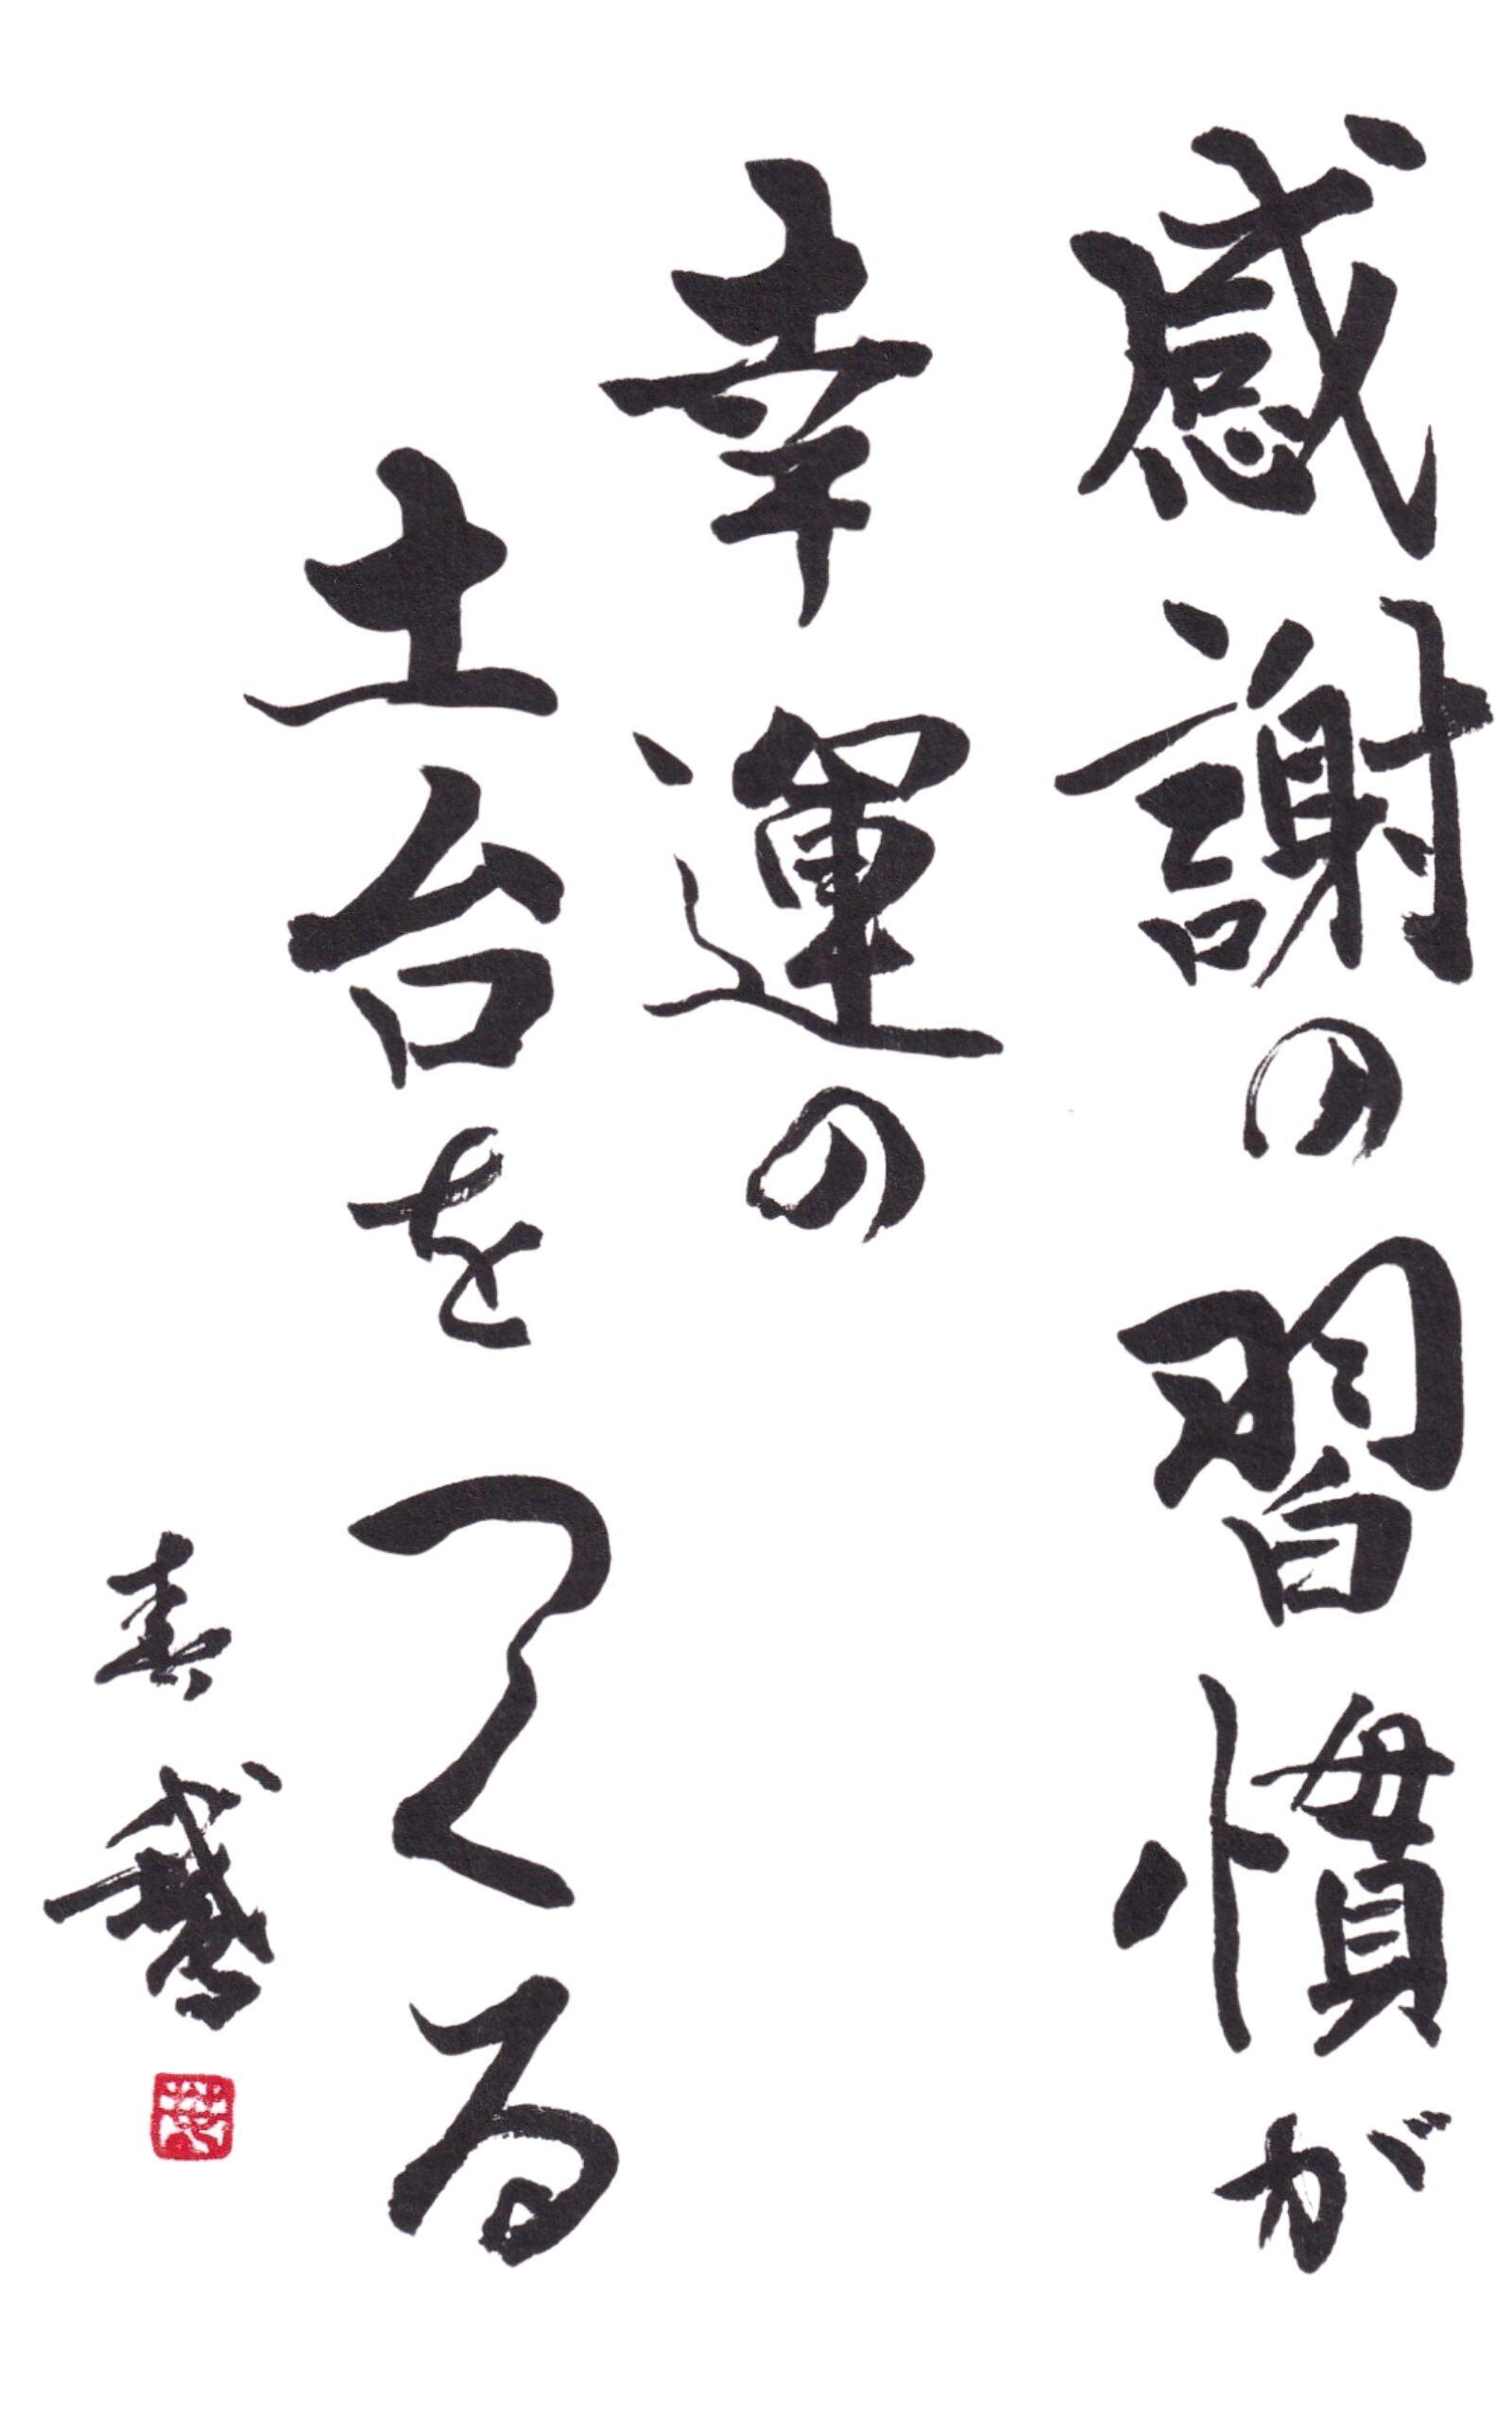 感謝の習慣が
幸運の
土台を
つくる